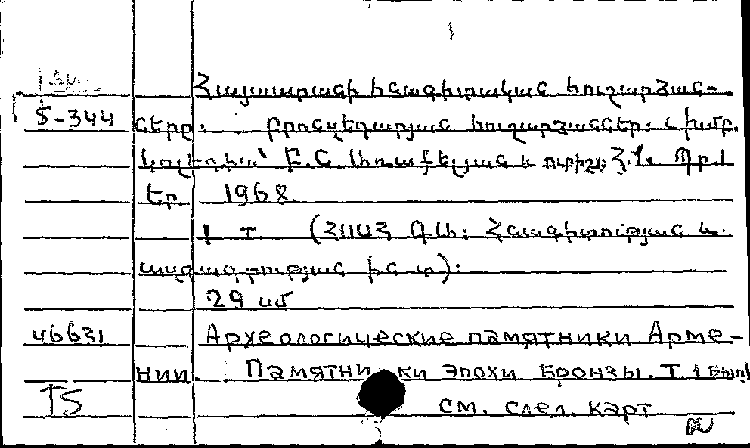 Հայաստանի հնագիտական հուշարձան-
S-344 ները. բրոնզեդարյան հուշարձաններ. խմբ.
կոլեգիա՝ Բ.Ն. Առաքելյան և ուրիշ. Հ.1. Պր.1
Եր. 1968
1 т. (ՀՍՍՀ ԳԱ. Հնագիտության և
ազգագրության ին-տ):
29 սմ
46631 Археологические памятники Арме-
нии. Памятники эпохи бронзы. Т. 1 вып
TS см. след. карт